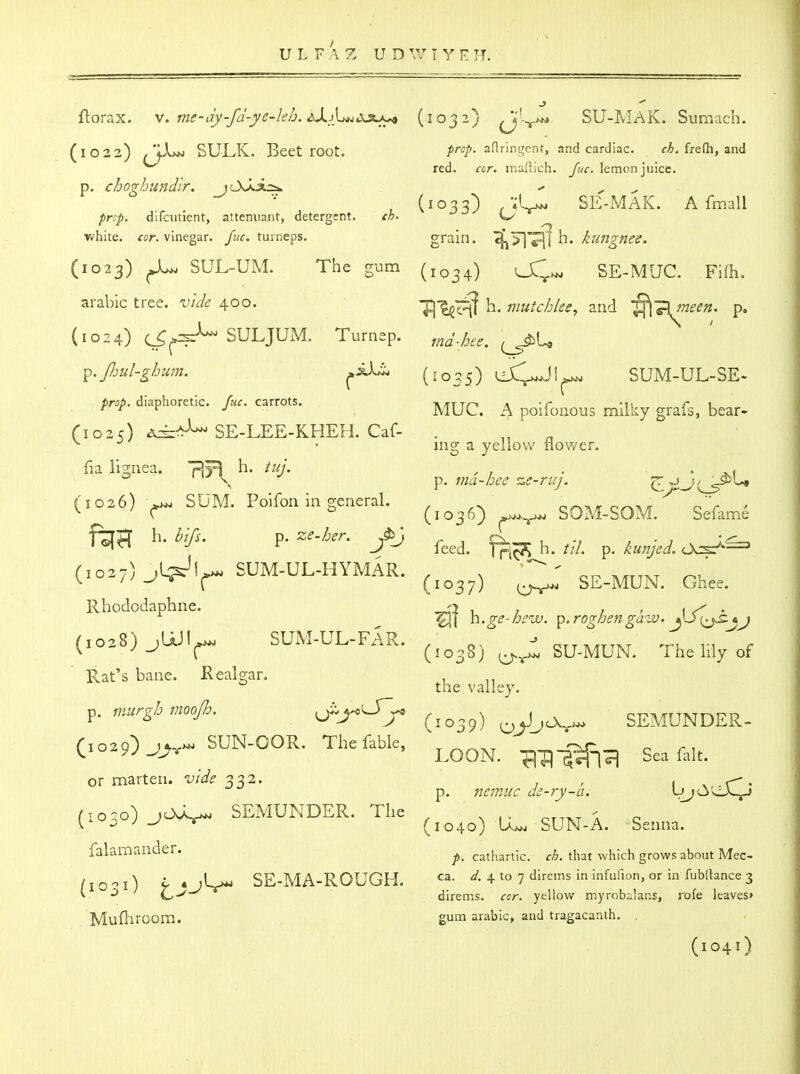 ULFÁZ UDWIYEH.
ſtorax. v. me-áy-ſá-ye-leh. ميعه سايله
(1022) سلق SULK. Beet root.
p. choghundir. چغندر
prop. diſcutient, attenuant, detergent. ch.
white. cor. vinegar. ſuc. turneps.
(1023) سلم SUL-UM. The gum
arabic tree. vide 400.
(1024) SULJUM. Turnep.
p. ſhul-ghum. شلغم
prop. diaphoretic. ſuc. carrots.
(1025) سليخه SE-LEE-KHEH. Caſ-
ſia lignea. तज h. tuj.
(1026) سم SUM. Poiſon in general.
h. biſs. p. ze-her. زهر
(1027) سم الحمار SUM-UL-HYMÁR.
Rhododaphne.
(1028) سم الفار SUM-UL-FÁR.
Rat's bane. Realgar.
p. murgh mooſh. مرگ موش
(1029) سمور SUN-OOR. The ſable,
or marten. vide 332.
(1030) سمندر SEMUNDER. The
ſalamander.
(1031) SE-MA-ROUGH.
Muſhroom.
(1032) سماق SU-MÁK. Sumach.
prop. aſtringent, and cardiac. ch. freſh, and
red. cor. maſtich. ſuc. lemon juice.
(1033) سماق SE-MÁK. A ſmall
grain. h. kungnee.
(1034) سمک SE-MUC. Fiſh.
h. mutchlee, and मीन meen. p.
má-hee. ماهي
(1035) سم السمک SUM-UL-SE-
MUC. A poiſonous milky graſs, bear-
ing a yellow flower.
p. má-hee ze-ruj. ماهي زرج
(1036) سمسم SOM-SOM. Seſamé
ſeed. तिल h. til. p. kunjed. کنجد
(1037) سمن SE-MUN. Ghee.
घी h. ge-hew. p. roghen gáw. روغن گاو
(1038) سمن SU-MUN. The lily of
the valley.
(1039) سمندرلون SEMUNDER-
LOON. Sea ſalt.
p. nemuc de-ry-á. نمک دريا
(1040) سنا SUN-Á. Senna.
p. cathartic. ch. that which grows about Mec-
ca. d. 4 to 7 direms in infuſion, or in ſubſtance 3
direms. cor. yellow myrobalans, roſe leaves,
gum arabic, and tragacanth.
(1041)